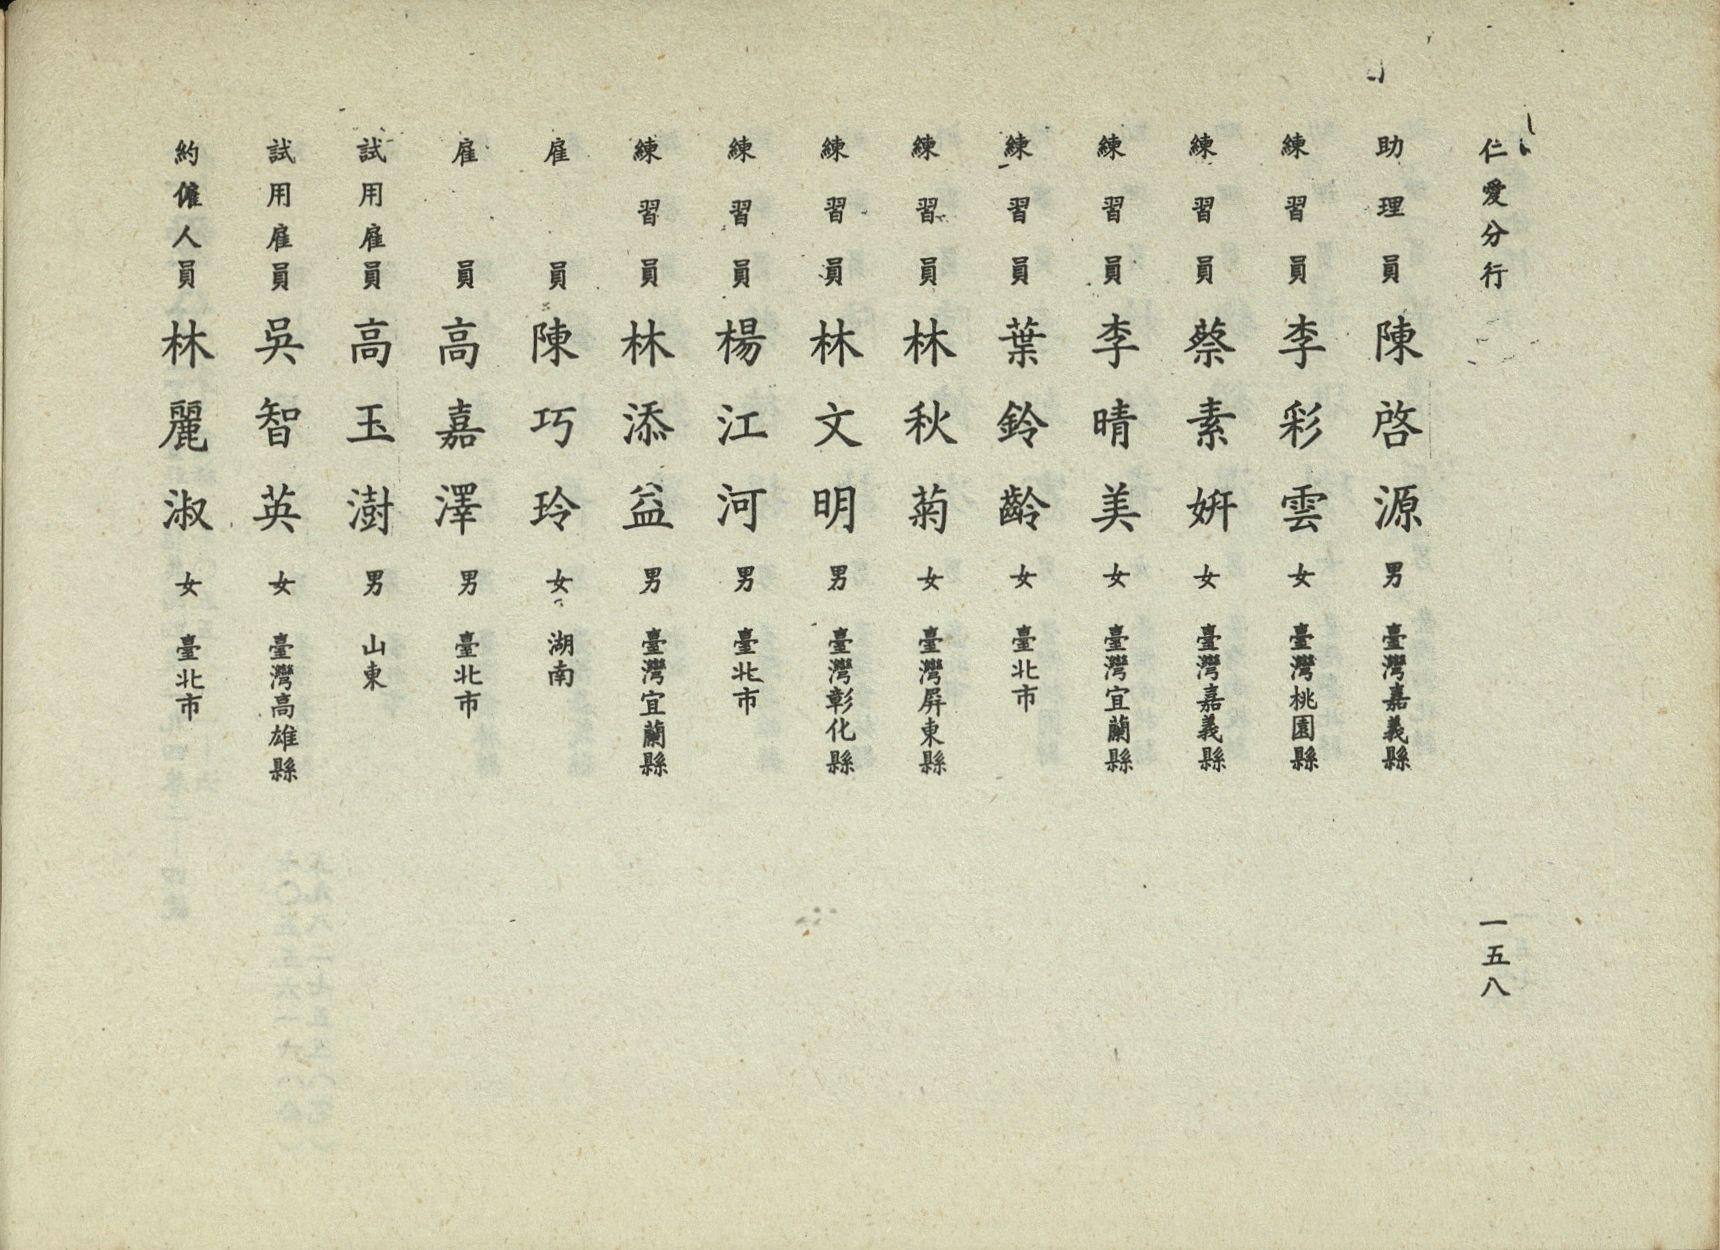 仁愛分行 一五八
助理員 陳啓源 男 臺灣嘉義縣
練習員 李彩雲 女 臺灣桃園縣
練習員 蔡素姸 女 臺灣嘉義縣
練習員 李晴美 女 臺灣宜蘭縣
練習員 葉鈴齡 女 臺北市
練習員 林秋菊 女 臺灣屏東縣
練習員 林文明 男 臺灣彰化縣
練習員 楊江河 男 臺北市
練習員 林添益 男 臺灣宜蘭縣
雇員 陳巧玲 女 湖南
雇員 高嘉澤 男 臺北市
試用雇員 高玉澍 男 山東
試用雇員 吳智英 女 臺灣高雄縣
約僱人員 林麗淑 女 臺北市